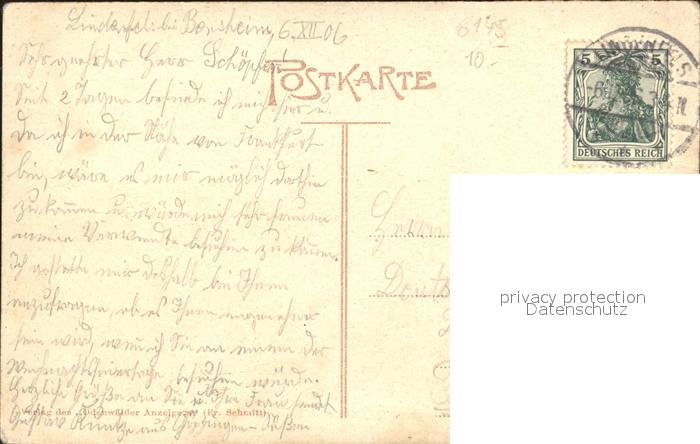 Lindenfels bei Bensheim, 6. XII 06
6145
10.-
Sehr geehrter Herr Schöpfer!
POSTKARTE
5 5
DEUTSCHES REICH
Seit 2 Tagen befinde ich mich hier u.
da ich in der Nähe von Frankfurt
bin, wäre es mir möglich dorthin
zu kommen u. würde mich sehr freuen
meine Verwandte besuchen zu können.
Ich gestatte mir deshalb bei Ihnen
anzufragen, ob es Ihnen angenehm
sein wird, wenn ich Sie an einem der
Weihnachtsfeiertage besuchen würde.
Herzliche Grüße an Sie u. Ihre Frau sendet
Gustav aus
Verlag des „Odenwälder Anzeiger" (Fr. Schmitt)
Herrn
privacy protection
Datenschutz